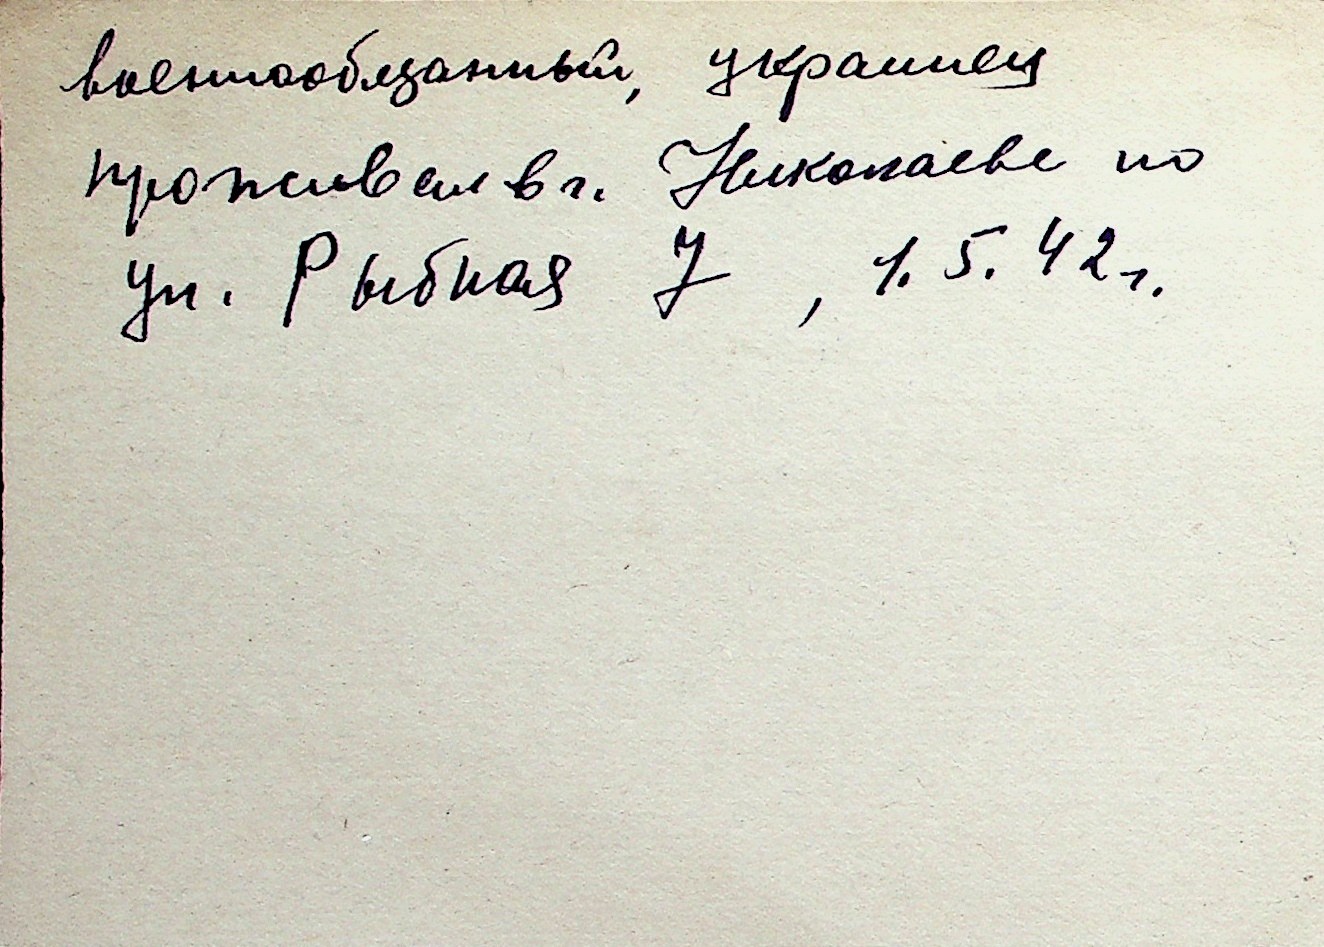 военнообязанный, украинец
проживал в г. Николаеве по
ул. Рыбная 7, 1.5.42 г.